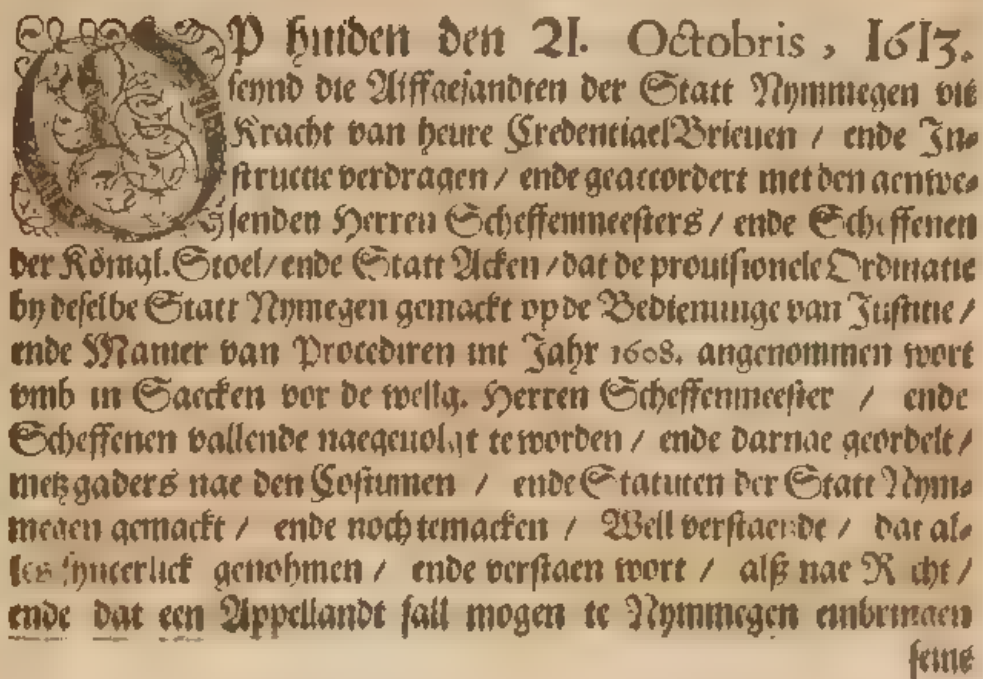 OP huiden den 21. Octobris, 1613.
seynd die Affgesandten der Statt Nymmegen vit
Kracht van heure Credentiael Brieuen / ende In-
structie verdragen / ende geaccordert met den aenwe-
senden Herren Scheffenmeesters / ende Scheffenen
der Königl. Stoel / ende Statt Acken / dat de prouisionele Ordinatie
by deselbe Statt Nymegen gemackt op de Bedienunge van Justitie /
ende Manier van Procediren int Jahr 1608. angenommen wort
vmb in Saecken vor de wellg. Herren Scheffenmeester / ende
Scheffenen vallende naegeuolgt te worden / ende darnae geordelt /
metzgaders nae den Costumen / ende Statuten der Statt Nym-
megen gemackt / ende noch te macken / Well verstaende / dat al-
les syncerlick genohmen / ende verstaen wort / alß nae Recht /
ende dat een Appellandt sall mogen te Nymmegen einbringen
seine